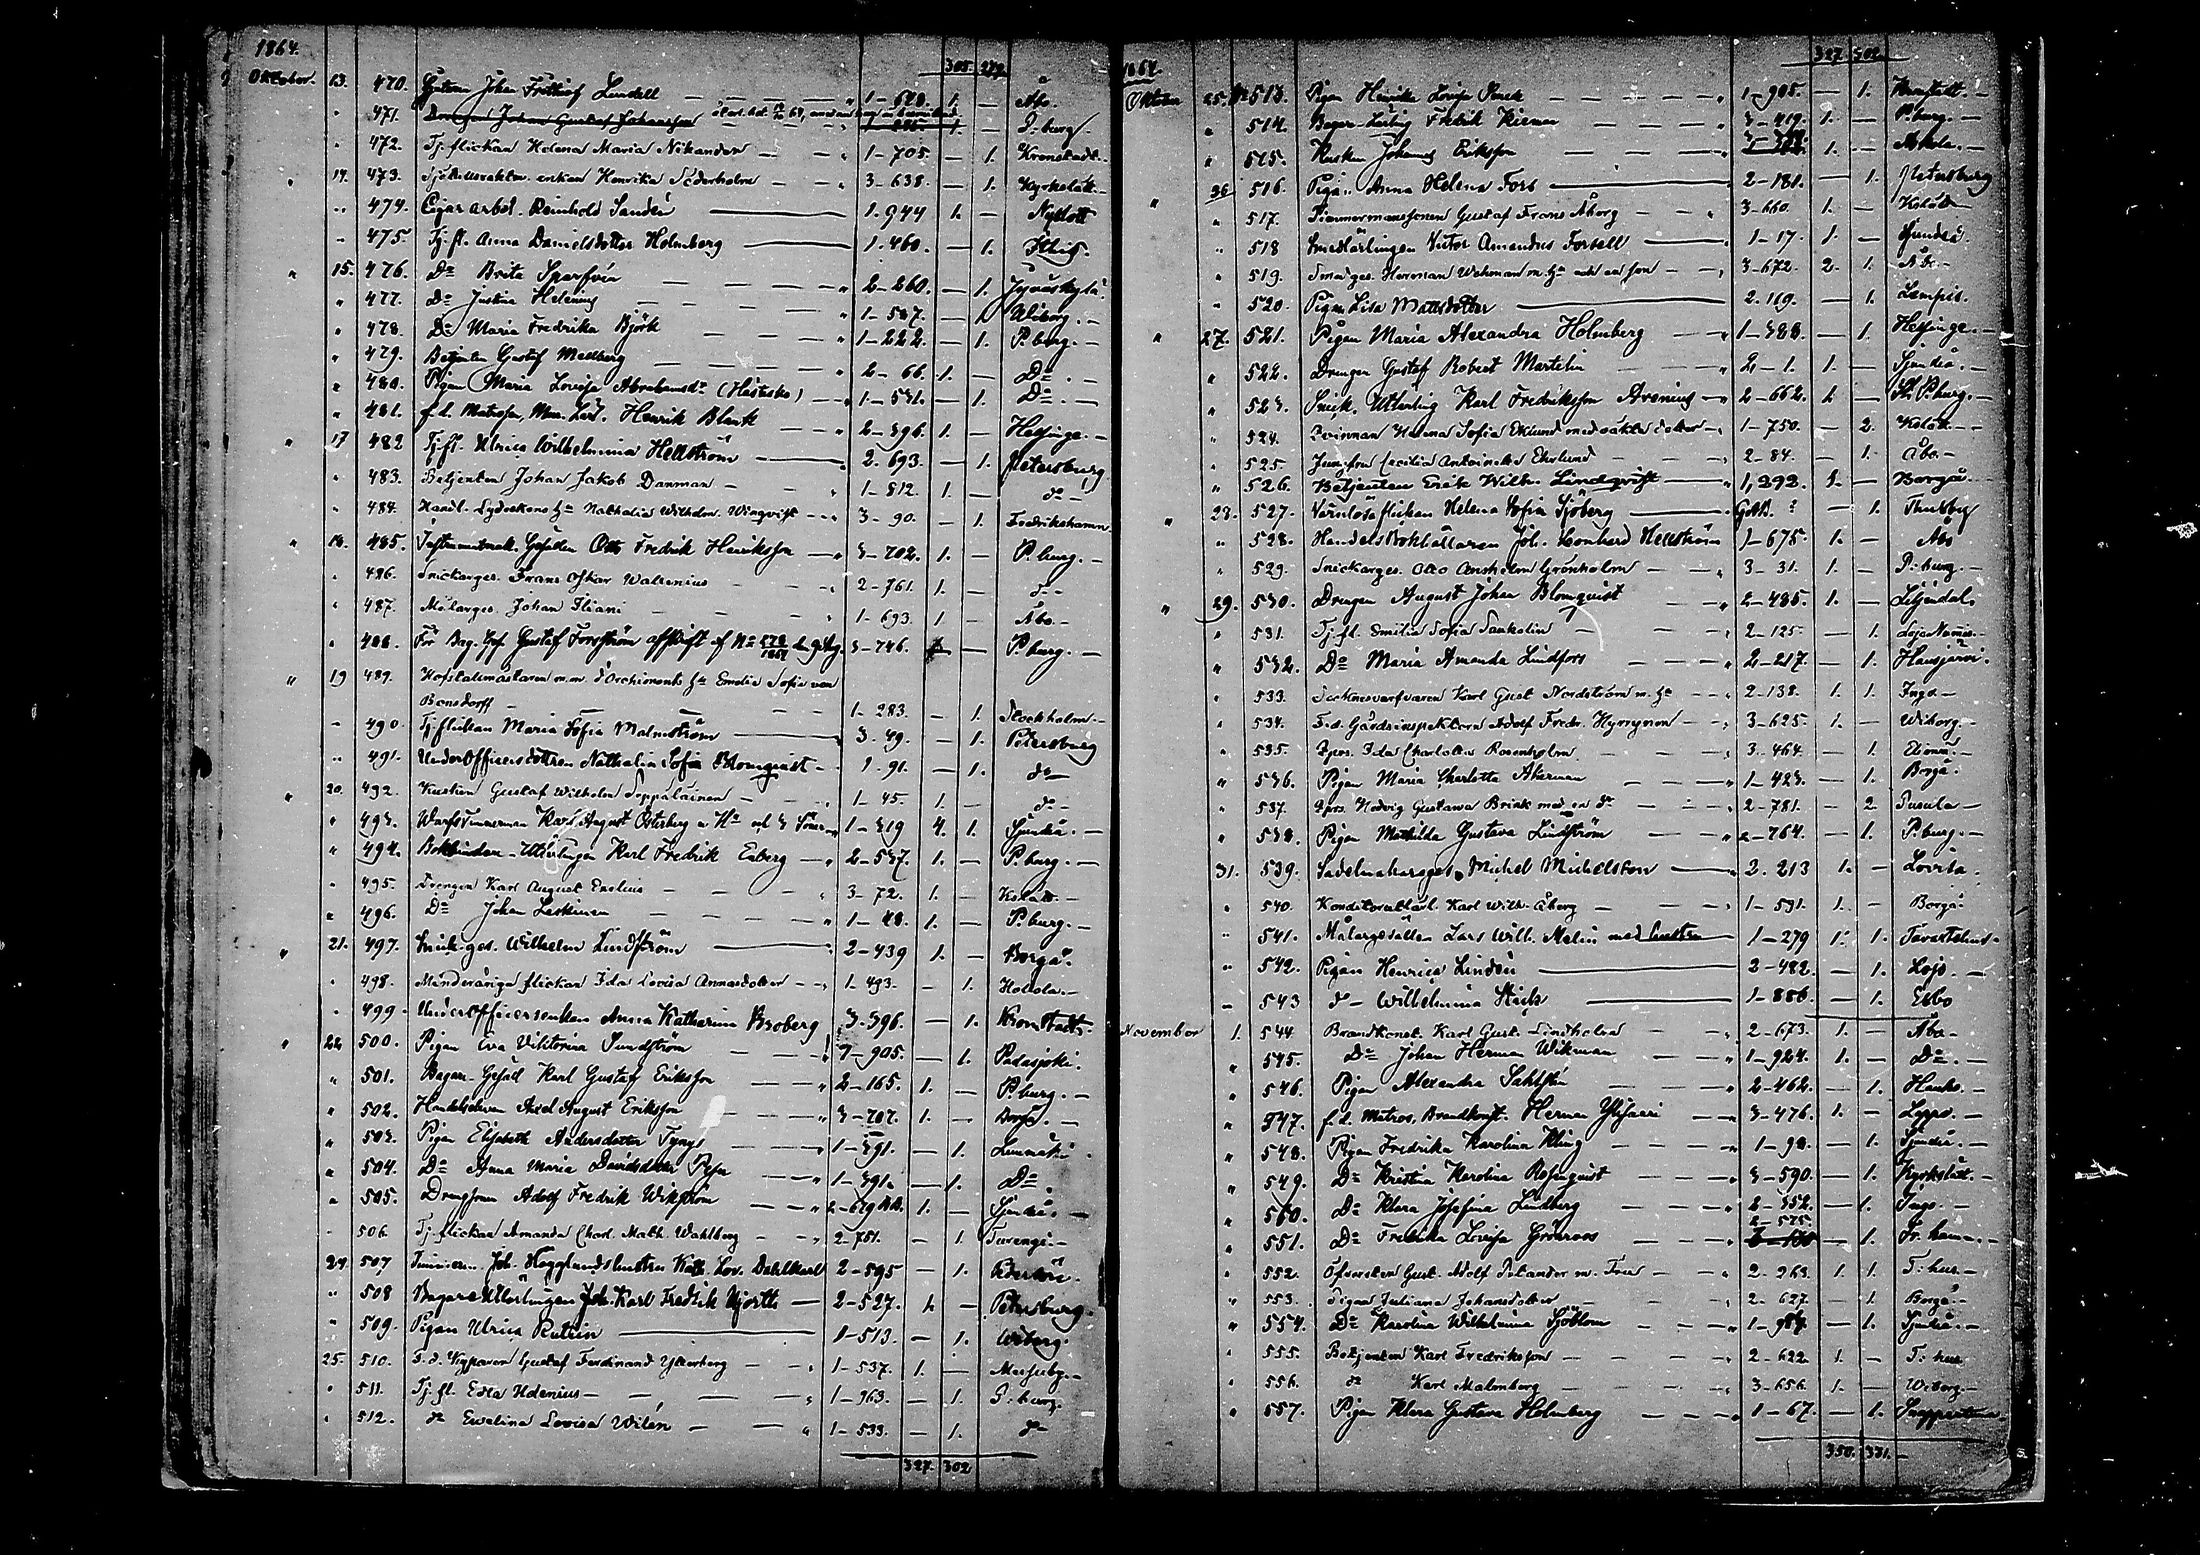 1864.
305. 279.
Oktober. 13. 470. Johan Frithiof Lundell 1-628. 1. — Åbo.
" 471. Drengen Johan Gustaf Johansson 1. — P.burg.
" 472. Tj. flickan Helena Maria Nikander 1-705. — 1. Kronstadt.
" 14. 473. enkan Henrika Söderholm 3-638. — 1. Kyrkslätt.
" 474. Cigararbet. Reinhold Sandér 1-944 1. — Nyslott
" 475. Tj. fl. Anna Danielsdotter Holmberg 1-460. — 1.
" 15. 476. Do Brita 2-260. — 1. Jyväskylä.
" 477. Do Justina Helenius 1-587. — 1. Wiborg.
" 478. Do Maria Fredrika Björk 1-222. — 1. P.burg.
" 479. Betjenten Gustaf Mellberg 2-66. 1. — Do.
" 480. Pigan Maria Lovisa Abrahamsdr 1-531. — 1. Do.
" 481. f.d. Matrosen, Henrik Blank 2-396. 1. — Helsinge.
" 17 482 Tj. fl. Ulrica Wilhelmina Hellström 2-693. — 1. Petersburg
" 483. Betjenten Johan Jakob Danman 1-812. 1. — do
" 484. Nathalia Wilhelm. Wingvist 3-90. — 1. Fredrikshamn
" 18. 485. Instrumentmak. Gesällen Otto Fredrik Henriksson 3-702. 1. — P.burg.
" 486. Snickarges. Frans Oskar Walsenius 2-761. 1. — do
" 487. Målarges. Johan Iliani 1-693. 1 — Åbo.
" 488. För Bag. Ges. Gustaf Forsström afskrift af No 578/1864 3-746. — P.burg.
" 19 489. Hofstallmästaren m.m. Emelie Sofia von
Bonsdorff 1-283. — 1. Stockholm.
" 490. Tj. flickan Maria Sofia Malmström 3-49. — 1. Petersburg
" 491. Underofficersdottren Nathalia Sofia Blomquist 1-91. — 1. do
" 20. 492. Kusken Gustaf Wilhelm Seppäläinen 1-45. 1. — do
" 493. Karl August Österberg 1-319 4. 1. Sjundeå.
" 494. Bokbindar-Utlärlingen Karl Fredrik Enberg 2-537. 1. — P.burg.
" 495. Drengen Karl August Enelius 3-72. 1. — Kslätt.
" 496. Do Johan Leskinen 1-48. 1. — P.burg.
" 21. 497. Snick.ges. Wilhelm Lindström 2-439 1. — Borgå.
" 498. Minderåriga flickan Ida Lovisa Annasdotter 1-493. — 1. Hollola.
" 499. Underofficersenkan Anna Katharina Broberg 3-396. — 1. Kronstadt.
" 22 500. Pigan Eva Viktorina Sundström 905. — 1. Padasjoki.
" 501. Bagare-Gesäll Karl Gustaf Eriksson 2-165. 1. — P.burg.
" 502. Axel August Eriksson 3-707. 1. — Borgå.
" 503. Pigan Elisabeth Andersdotter 1-391. — 1.
" 504. Do Anna Maria Davidsdotter 1-391. — 1. Do
" 505. Drengsonen Adolf Fredrik Wikström 1. — Sjundeå.
" 506. Tj. flickan Amanda Charl. Math. Wahlberg 2-751. — 1. Turengi.
24 507 Joh. Hägglunds hustru Kath. Lov. 2-595 — 1.
" 508 Bagare Utlärlingen Joh. Karl Fredrik Hjorth 2-527. 1. — Petersburg.
" 509. Pigan Ulrica 1-513. — 1. Wiborg.
25. 510. F.d. Kyparen Gustaf Ferdinand Ytterberg 1-537. 1. —
" 511. Tj. fl. Edla Idenius 1-963. — 1. P.burg.
" 512. do Ewelina Lovisa Wilén 1-533. — 1. do
327. 302
327. 302.
1864.
Oktober 25. No 513. Pigan Henrika Lovisa 1-905. — 1. Kronstadt.
" 514. Bagare-Lärling Fredrik 3-419. 1. — P.burg.
" 515. Kusken Johannes Eriksson 1. — Askola.
" 26 516. Pigan Anna Helena Fors 2-181. — 1. Petersburg
" 517. Timmermanssonen Gustaf Frans Åberg 3-660. 1. — Kslätt
" 518 Smedlärlingen Victor Amandus Forsell 1-17. 1. — Sjundeå.
" 519. Smedges. Herrman Wekman 3-672. 2. 1.
" 520. Pigan Lisa Mattsdotter 2-119. — 1. Lampis.
" 27. 521. Pigan Maria Alexandra Holmberg 1-388. — 1. Helsinge.
" 522. Drengen Gustaf Robert Martelin 2-1. 1. — Sjundeå.
" 523. Snick. Utlärling Karl Fredriksson Arenius 2-662. 1. — St. P.burg.
" 524. Qvinnan Helena Sofia Eklund med oäkta dotter 1-750. — 2. Kslätt.
" 525. Jungfru Cecilia Antoinette Ekelund 2-84. — 1. Åbo.
" 526. Betjenten Erik Wilh. Lindqvist 1,292. 1. — Borgå.
" 28. 527. Värnlösa flickan Helena Sofia Sjöberg — 1. Thusby
" 528. Handels Bokhållaren Joh. Leonhard Hellström 1-675. 1. — Åbo
" 529. Snickarges. Otto Anshelm Grönholm 3-31. 1. — P.burg.
" 29. 530. Drengen August Johan Blomquist 2-485. 1. — Liljendal.
" 531. Tj. fl. Emilia Sofia 2-125. — 1.
" 532. Do Maria Amanda Lindfors 2-217. — 1. Hausjärvi.
" 533. Karl Gust. Nordström 2-138. 1. 1. Ingå
" 534. F.d. Gårdsinspektorn Adolf Fredr. Hyrrynen 3-625. 1. — Wiborg.
" 535. Ida Charlotta Rosenholm 3-464. — 1. Elimä.
" 536. Pigan Maria Charlotta Åkerman 1-423. — 1. Borgå.
" 537. Hedvig Gustawa Brink med en dr 2-781. — 2. Pusula
" 538. Pigan Mathilda Gustava Lindström 2-764. — 1. P.burg.
31. 539. Sadelmakareges. Michel Michelsson 2-213 1. — Lovisa.
" 540. Konditorilärl. Karl Wilh. Åberg 1-591. 1. — Borgå
" 541. Målargesällen Lars Wilh. Malin med hustru 1-279 1. 1. Tavastehus.
" 542. Pigan Henrica Lindén 2-482. — 1. Lojo.
" 543 do Wilhelmina 1-886. — 1. Esbo
November 1. 544 Brandkonst. Karl Gust. Lindholm 2-673. 1. — Åbo
" 545. Do Johan Herman Wikman 1-924. 1. — Do.
" 546. Pigan Alexandra Sahlstén 2-462. — 1. Hauho.
" 547. f.d. Matros, Brandkonst. Herman 3-476. 1. — Loppi.
" 548. Pigan Fredrika Karolina Kling 1-98. — 1. Sjundeå.
" 549. Do Kristina Karolina Rosenquist 3-590. — 1. Kyrkslätt.
" 550. Do Klara Josefina Lindberg 2-352. — 1. Ingå.
" 551. Do Fredrika Lovisa Grönroos 2-575. — 1. Fr.hamn.
" 552. Öfversten Gust. Adolf Pelander m. Fru 2-263. 1. 1. T:hus.
" 553. Pigan Juliana Johansdotter 2-627. — 1. Borgå
" 554. Do Karolina Wilhelmina Sjöblom 1-987. — 1. Sjundeå.
" 555. Betjenten Karl Fredriksson 2-622. 1. — T:hus
" 556. do Karl Malmberg 3-656. 1. — Wiborg.
" 557. Pigan Klara Gustava Holmberg 1-67. — 1. Snappertuna.
350. 331.